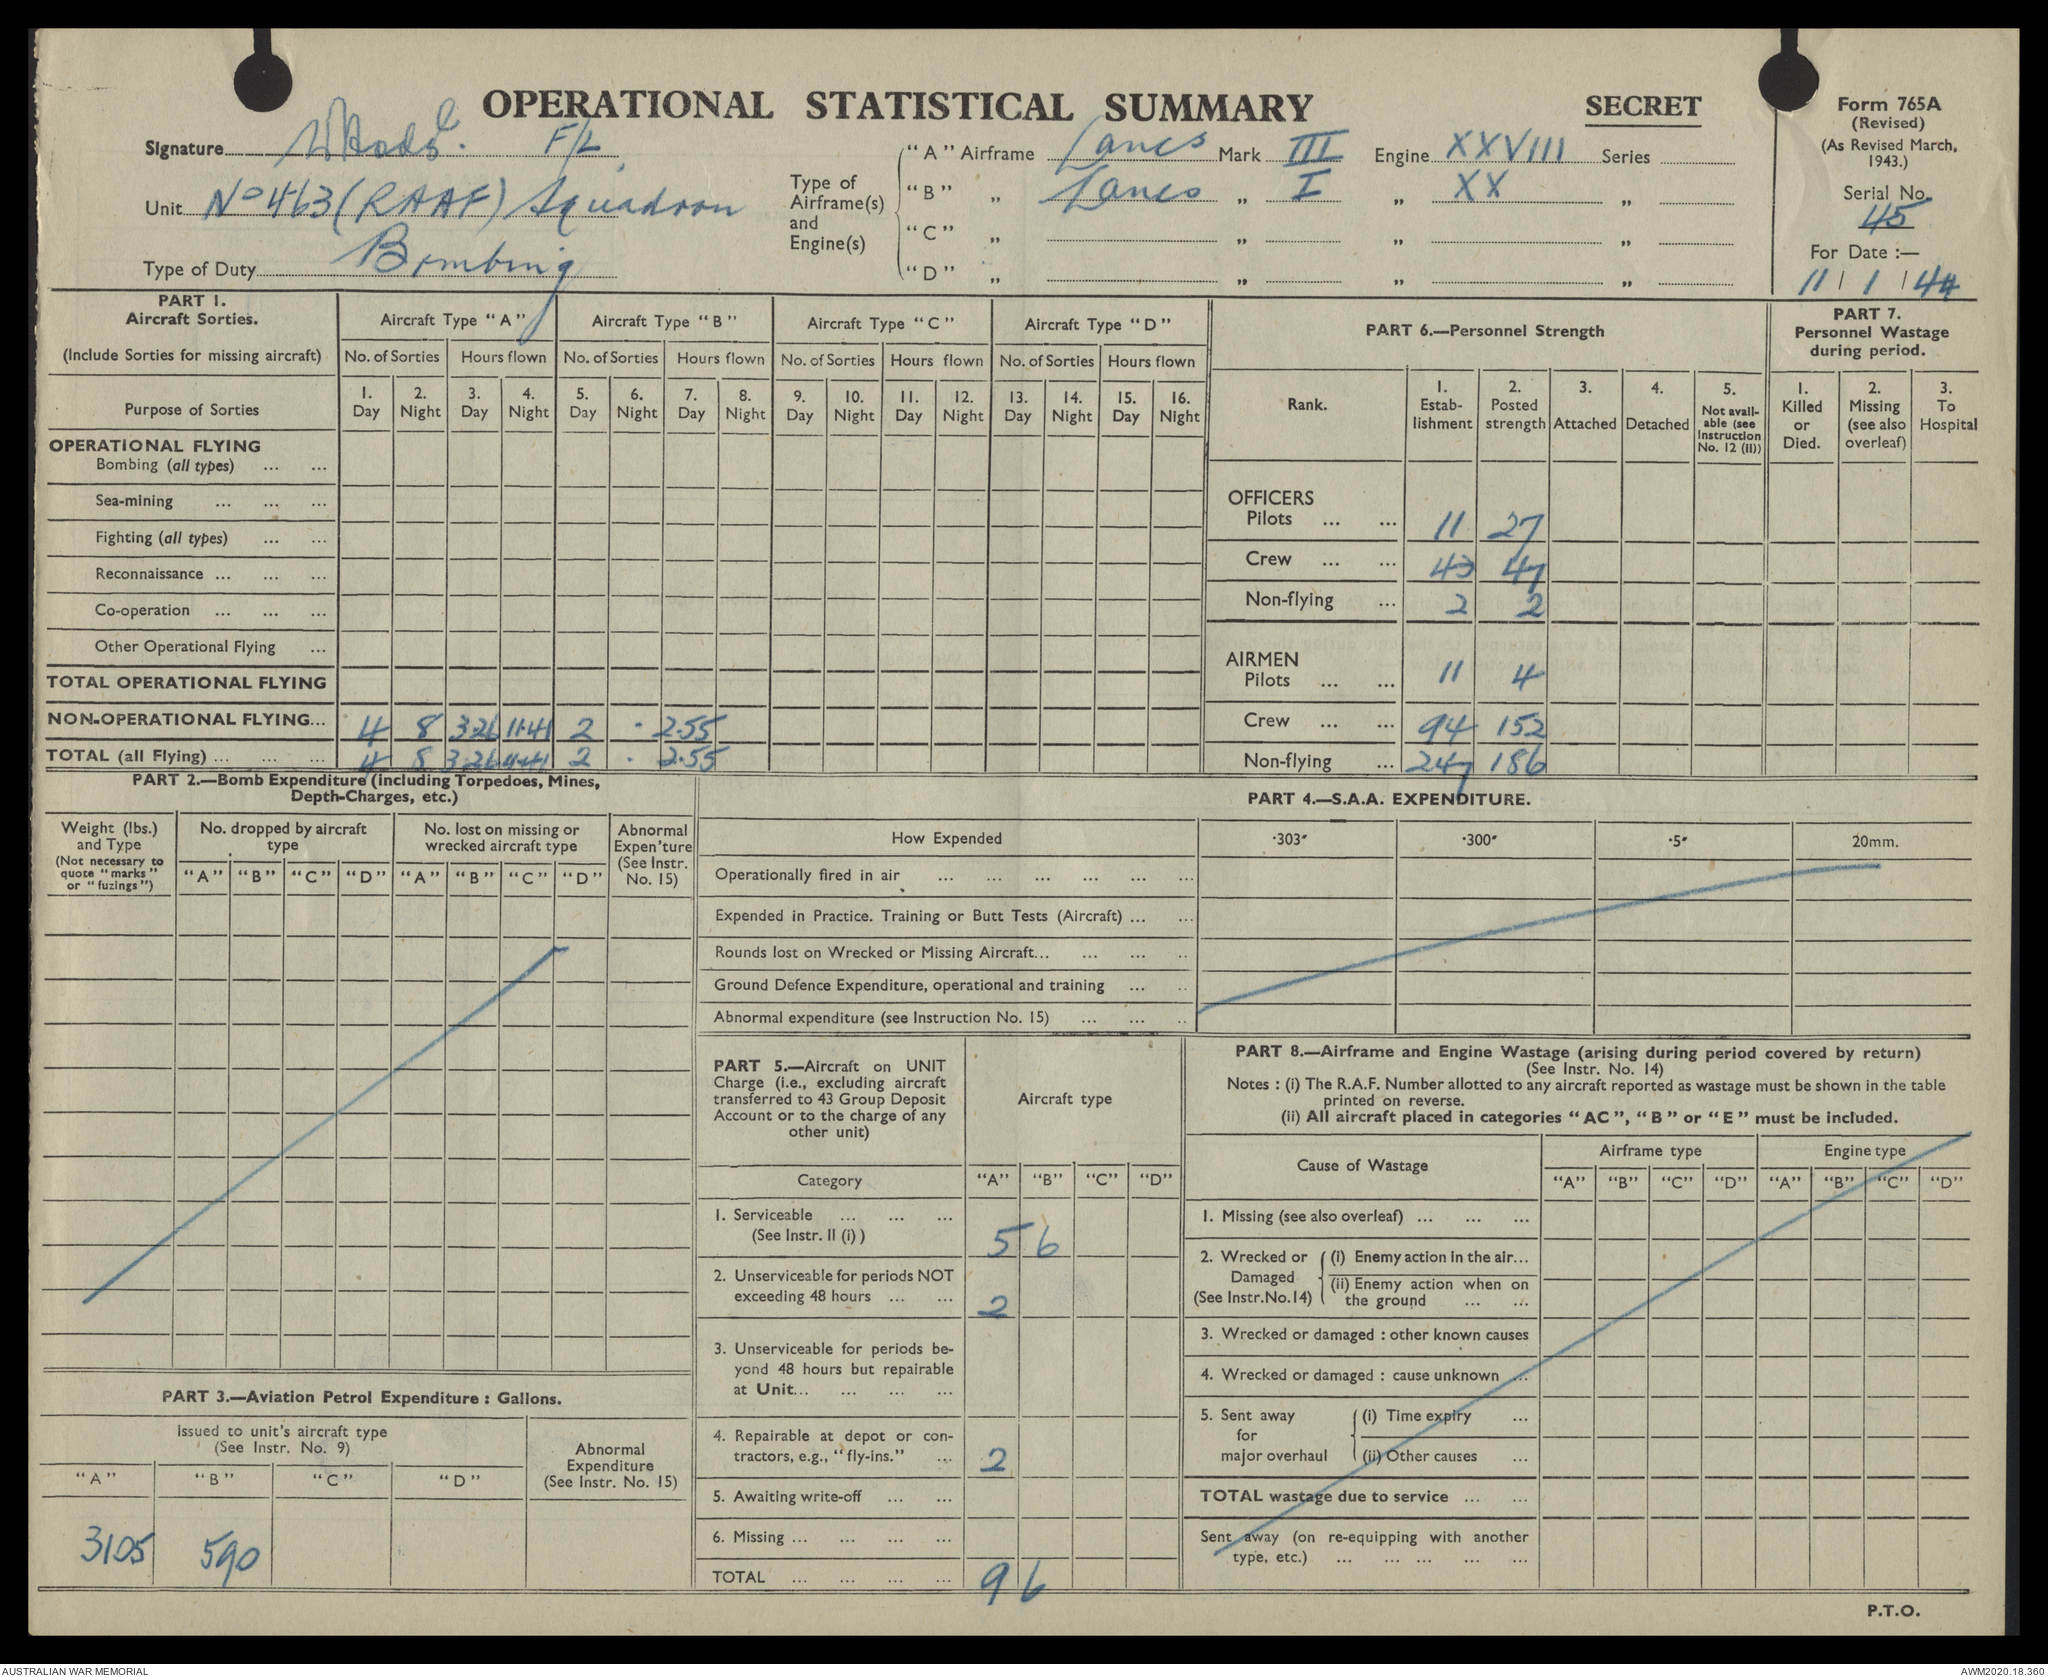 OPERATIONAL STATISTICAL SUMMARY
SECRET
Form 765A
(Revised)
(As Revised March,
1943.)
Serial No.
45
For Date :—
11 / 1 / 44
Signature F/L
Unit No 463 (RAAF) Squadron
Type of Duty Bombing
Type of
Airframe(s)
and
Engine(s)
"A" Airframe Lancs Mark III Engine XXVIII Series
"B" „ Lancs „ I „ XX „
"C" „ „ „ „
"D" „ „ „ „
PART 1.
Aircraft Sorties.
(Include Sorties for missing aircraft)
Aircraft Type "A" Aircraft Type "B" Aircraft Type "C" Aircraft Type "D"
No. of Sorties Hours flown No. of Sorties Hours flown No. of Sorties Hours flown No. of Sorties Hours flown
Purpose of Sorties
1. Day 2. Night 3. Day 4. Night 5. Day 6. Night 7. Day 8. Night 9. Day 10. Night 11. Day 12. Night 13. Day 14. Night 15. Day 16. Night
OPERATIONAL FLYING
Bombing (all types) ... ...
Sea-mining ... ... ...
Fighting (all types) ... ...
Reconnaissance ... ... ...
Co-operation ... ... ...
Other Operational Flying ...
TOTAL OPERATIONAL FLYING
NON-OPERATIONAL FLYING... 4 8 3.26 11.41 2 . 2.55
TOTAL (all Flying) ... ... ... 4 8 3.26 11.41 2 . 2.55
PART 6.—Personnel Strength
Rank.
1. Estab-lishment
2. Posted strength
3. Attached
4. Detached
5. Not avail-able (see Instruction No. 12 (II))
OFFICERS
Pilots ... ... 11 27
Crew ... ... 43 47
Non-flying ... 2 2
AIRMEN
Pilots ... ... 11 4
Crew ... ... 94 152
Non-flying ... 247 186
PART 7.
Personnel Wastage
during period.
1. Killed or Died.
2. Missing (see also overleaf)
3. To Hospital
PART 2.—Bomb Expenditure (including Torpedoes, Mines,
Depth-Charges, etc.)
Weight (lbs.)
and Type
(Not necessary to
quote "marks"
or "fuzings")
No. dropped by aircraft
type
No. lost on missing or
wrecked aircraft type
Abnormal
Expen'ture
(See Instr.
No. 15)
"A" "B" "C" "D" "A" "B" "C" "D"
PART 3.—Aviation Petrol Expenditure : Gallons.
Issued to unit's aircraft type
(See Instr. No. 9)
Abnormal
Expenditure
(See Instr. No. 15)
"A" "B" "C" "D"
3105 590
PART 4.—S.A.A. EXPENDITURE.
How Expended ·303" ·300" ·5" 20mm.
Operationally fired in air ... ... ... ... ... ...
Expended in Practice. Training or Butt Tests (Aircraft) ... ...
Rounds lost on Wrecked or Missing Aircraft... ... ... ..
Ground Defence Expenditure, operational and training ... ..
Abnormal expenditure (see Instruction No. 15) ... ... ..
PART 5.—Aircraft on UNIT
Charge (i.e., excluding aircraft
transferred to 43 Group Deposit
Account or to the charge of any
other unit)
Aircraft type
Category "A" "B" "C" "D"
1. Serviceable ... ... ...
(See Instr. II (i) ) 5 6
2. Unserviceable for periods NOT
exceeding 48 hours ... ... 2
3. Unserviceable for periods be-
yond 48 hours but repairable
at Unit... ... ... ...
4. Repairable at depot or con-
tractors, e.g., "fly-ins." ... 2
5. Awaiting write-off ... ...
6. Missing ... ... ... ...
TOTAL ... ... ... ... 9 6
PART 8.—Airframe and Engine Wastage (arising during period covered by return)
(See Instr. No. 14)
Notes : (i) The R.A.F. Number allotted to any aircraft reported as wastage must be shown in the table
printed on reverse.
(ii) All aircraft placed in categories "AC", "B" or "E" must be included.
Cause of Wastage Airframe type Engine type
"A" "B" "C" "D" "A" "B" "C" "D"
1. Missing (see also overleaf) ... ... ...
2. Wrecked or
Damaged
(See Instr.No.14)
(i) Enemy action in the air...
(ii) Enemy action when on
the ground ... ...
3. Wrecked or damaged : other known causes
4. Wrecked or damaged : cause unknown ...
5. Sent away
for
major overhaul
(i) Time expiry ...
(ii) Other causes ...
TOTAL wastage due to service ... ...
Sent away (on re-equipping with another
type, etc.) ... ... ... ... ...
P.T.O.
AUSTRALIAN WAR MEMORIAL
AWM2020.18.360